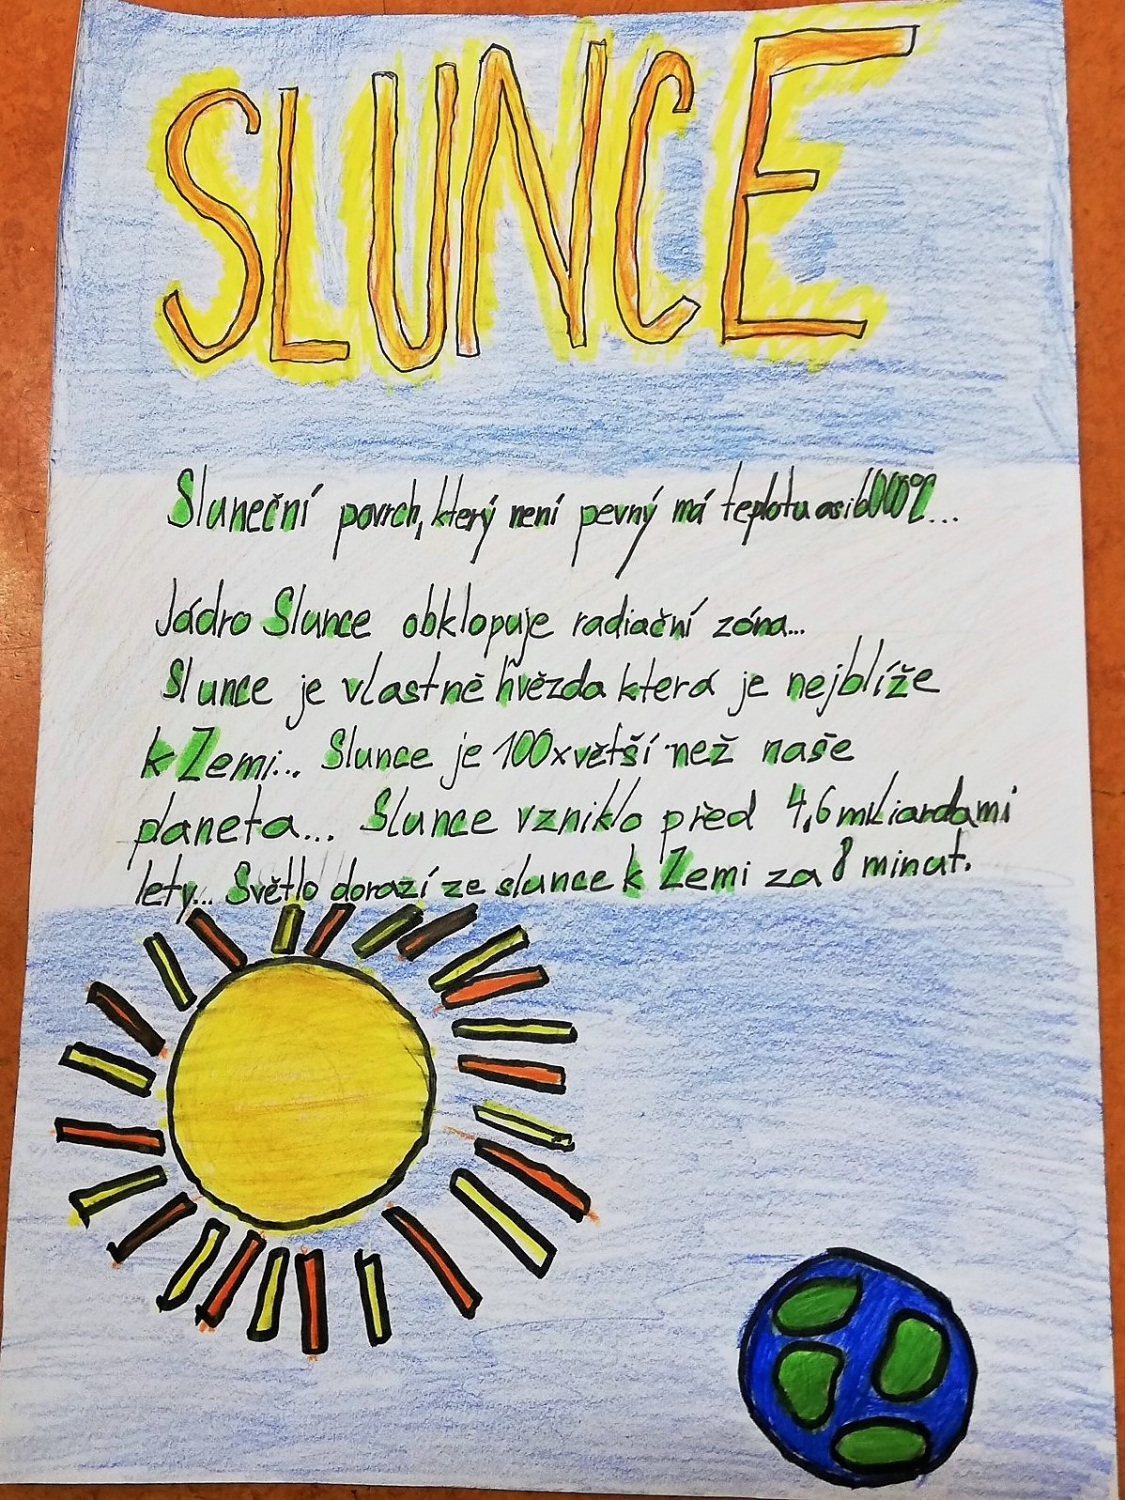 SLUNCE
Sluneční povrch, který není pevný má teplotu asi 6000°C...
Jádro Slunce obklopuje radiační zóna...
Slunce je vlastně hvězda která je nejblíže
k Zemi... Slunce je 100x větší než naše
planeta... Slunce vzniklo před 4,6 miliardami
lety... Světlo dorazí ze slunce k Zemi za 8 minut.